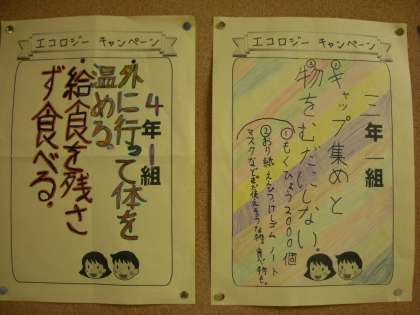 エコロジー キャンペーン
4年1組
・外に行って体を
温める
・給食を残さ
ず食べる。
エコロジー キャンペーン
三年一組
①キャップ集めと
②物をむだにしない。
①もくひょう2000個
②おり紙 えんぴつ けしゴム ノート